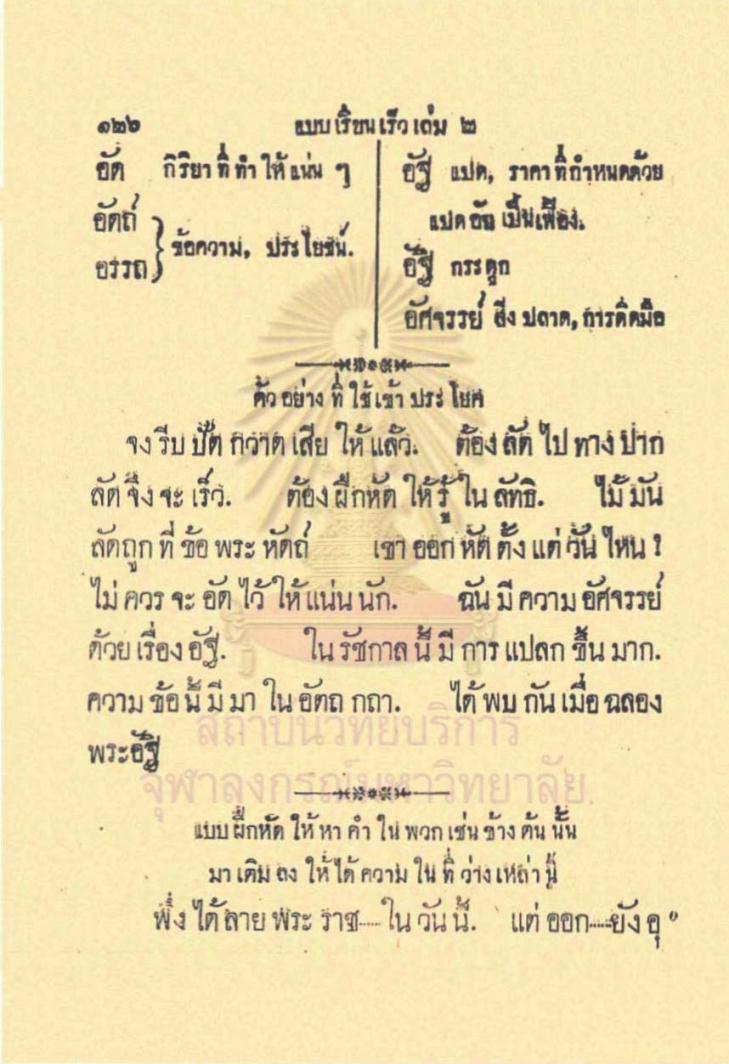 ๑๒๖ แบบ เรียน เร็ว เล่ม ๒
อัด กิริยา ที่ ทำ ให้ แน่น ๆ
อัตถ์
อรรถ
ข้อความ, ประโยชน์.
อัฐ แปด, ราคา ที่ กำหนด ด้วย
แปด อัน เปนเฟื้อง.
อัฐิ กระดูก
อัศจรรย์ สิ่ง ปลาด, การ ดีดมือ
ตัว อย่าง ที่ ใช้ เข้า ประโยค
จง รีบ ปัด กวาด เสีย ให้ แล้ว. ต้อง ลัด ไป ทาง ปาก
ลัด จึง จะ เร็ว. ต้อง ฝึกหัด ให้ รู้ ใน ลัทธิ. ไม้ มัน
ลัดถูก ที่ ข้อ พระ หัตถ์ เขา ออก หัด ตั้ง แต่ วัน ไหน?
ไม่ ควร จะ อัด ไว้ ให้ แน่น นัก. ฉัน มี ความ อัศจรรย์
ด้วย เรื่อง อัฐิ. ใน รัชกาล นี้ มี การ แปลก ขึ้น มาก.
ความ ข้อ นี้ มี มา ใน อัตถ กถา. ได้ พบ กัน เมื่อ ฉลอง
พระอัฐิ
แบบ ฝึกหัด ให้ หา คำ ใน พวก เช่น ข้าง ต้น นั้น
มา เติม ลง ให้ ได้ ความ ใน ที่ ว่าง เหล่า นี้
พึ่ง ได้ ลาย พระ ราช.... ใน วัน นี้. แต่ ออก....ยัง อุ"
สถาบันวิทยบริการ
จุฬาลงกรณ์มหาวิทยาลัย